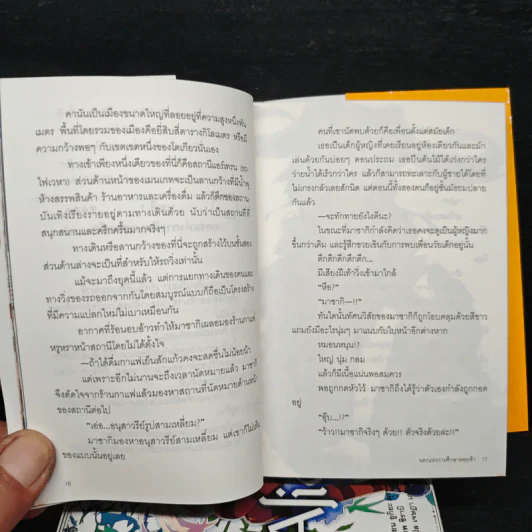 คานันเป็นเมืองขนาดใหญ่ที่ลอยอยู่ที่ความสูงหนึ่งพัน
เมตร พื้นที่โดยรวมของเมืองคือยี่สิบสี่ตารางกิโลเมตร หรือมี
ความกว้างพอๆ กับเขตเขตหนึ่งของโตเกียวนั่นเอง
ทางเข้าเพียงหนึ่งเดียวของที่นี่คือสถานีแอร์เทรน (รถ
ไฟเวหา) ส่วนด้านหน้าของเมนเกทจะเป็นลานกว้างที่มีน้ำพุ
ห้างสรรพสินค้า ร้านอาหารและเครื่องดื่ม แล้วก็ตึกของสถาน
บันเทิงเรียงรายอยู่ตามทางเดินด้วย นับว่าเป็นสถานที่ที่
สนุกสนานและครึกครื้นมากจริงๆ
ทางเดินหรือลานกว้างของที่นี่จะถูกสร้างไว้บนชั้นสอง
ส่วนด้านล่างจะเป็นที่สำหรับให้รถวิ่งเท่านั้น
แม้จะมาถึงยุคนี้แล้ว แต่การแยกทางเดินของคนและ
ทางวิ่งของรถออกจากกันโดยสมบูรณ์แบบก็ถือเป็นโครงสร้าง
ที่มีความแปลกใหม่ไม่เบาเหมือนกัน
อากาศที่ร้อนอบอ้าวทำให้มาซากิเผลอมองร้านกาแฟ
หรูหราหน้าสถานีโดยไม่ได้ตั้งใจ
—ถ้าได้ดื่มกาแฟเย็นสักแก้วคงจะสดชื่นไม่น้อยน้า
แต่เพราะอีกไม่นานจะถึงเวลานัดหมายแล้ว มาซากิ
จึงตัดใจจากร้านกาแฟแล้วมองหาสถานที่นัดหมายด้านหน้า
ของสถานีต่อไป
“เอ่อ...อนุสาวรีย์รูปสามเหลี่ยม?”
มาซากิมองหาอนุสาวรีย์รูปสามเหลี่ยม แต่เขาก็ไม่เห็น
ของแบบนั้นอยู่เลย
16
คนที่เขานัดพบด้วยก็คือเพื่อนตั้งแต่สมัยเด็ก
เธอเป็นเด็กผู้หญิงที่เคยเรียนอยู่ห้องเดียวกันและมัก
เล่นด้วยกันบ่อยๆ ตอนประถม เธอปีนต้นไม้ได้เก่งกว่าใคร
ว่ายน้ำได้เร็วกว่าใคร แล้วก็สามารถทะเลาะกับผู้ชายได้โดยที่
ไม่เกรงกลัวเลยสักนิด แต่ตอนนี้ทั้งสองคนก็อยู่ชั้นมัธยมปลาย
กันแล้ว
—จะทักทายยังไงดีนะ?
ในขณะที่มาซากิกำลังคิดว่าเธอคงจะดูเป็นผู้หญิงมาก
ขึ้นกว่าเดิม และรู้สึกชวยเขินกับการพบเพื่อนวัยเด็กอยู่นั้น
ตึกตึกตึกตึกตึกตึก...
มีเสียงฝีเท้าวิ่งเข้ามาใกล้
“หือ?”
“มาซากิ—!!”
ทันใดนั้นทัศนวิสัยของมาซากิก็ถูกโอบคลุมด้วยสีขาว
แถมยังมีอะไรนุ่มๆ มาแนบกับใบหน้าอีกต่างหาก
หมอนหนุน?
ใหญ่ นุ่ม กลม
แล้วก็มีเนื้อแน่นพอสมควร
พอถูกกดหัวไว้ มาซากิถึงได้รู้ว่าตัวเองกำลังถูกกอด
อยู่
“อุ๊บ...!?”
“ว้าว!!มาซากิจริงๆ ด้วย!! ตัวจริงด้วยล่ะ!!”
17